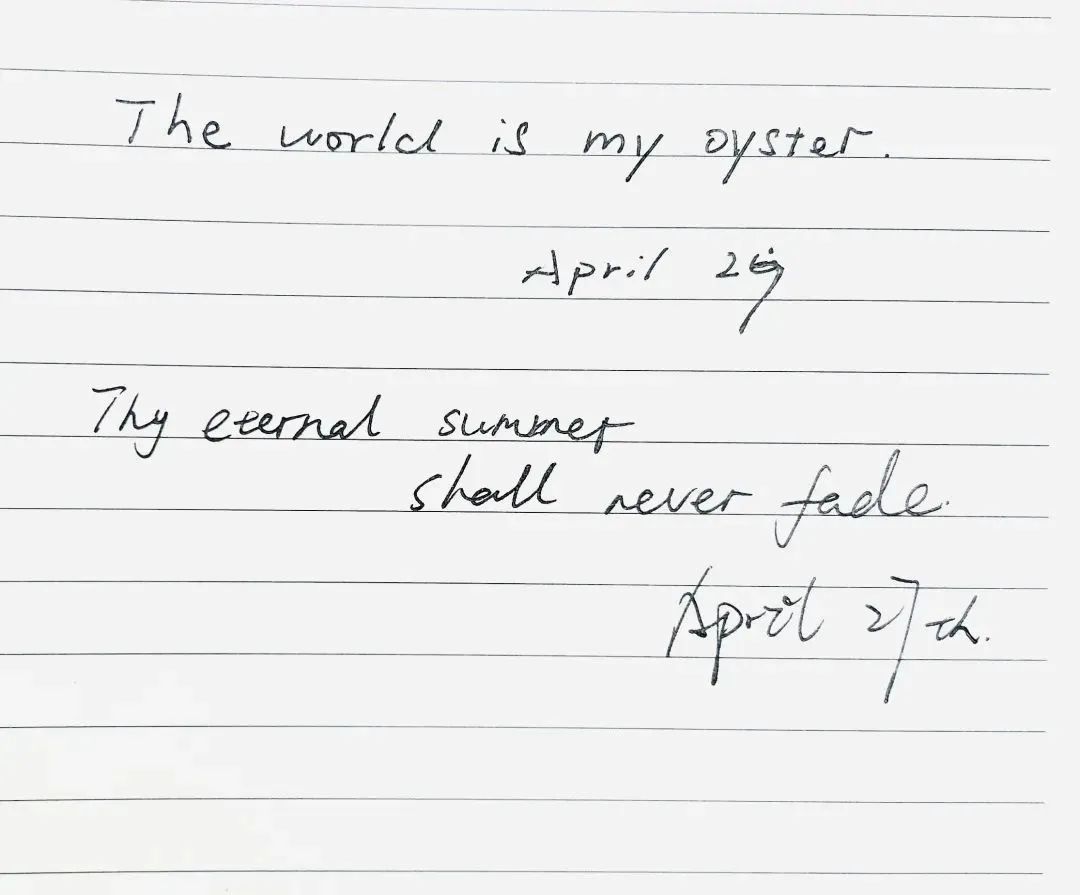 The world is my oyster.
April
Thy eternal summer
shall never fade.
April 27th.